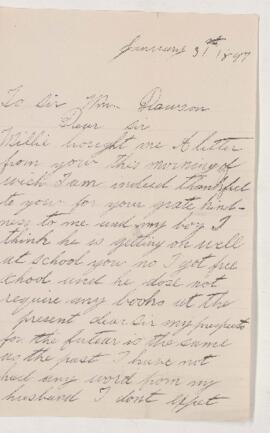 January 31st 1897
To Sir Wm Dawson
Dear Sir
Willie brought me A letter
from your this morning of
wich I am indeed thankful
to your for your grate kind-
ness to me and my boy I
think he is getting on well
at school you no I got free
school and he dose not
require any books at the
present dear Sir my prospects
for the futear is the same
as the past I have not
had any word from my
husband I dont expet